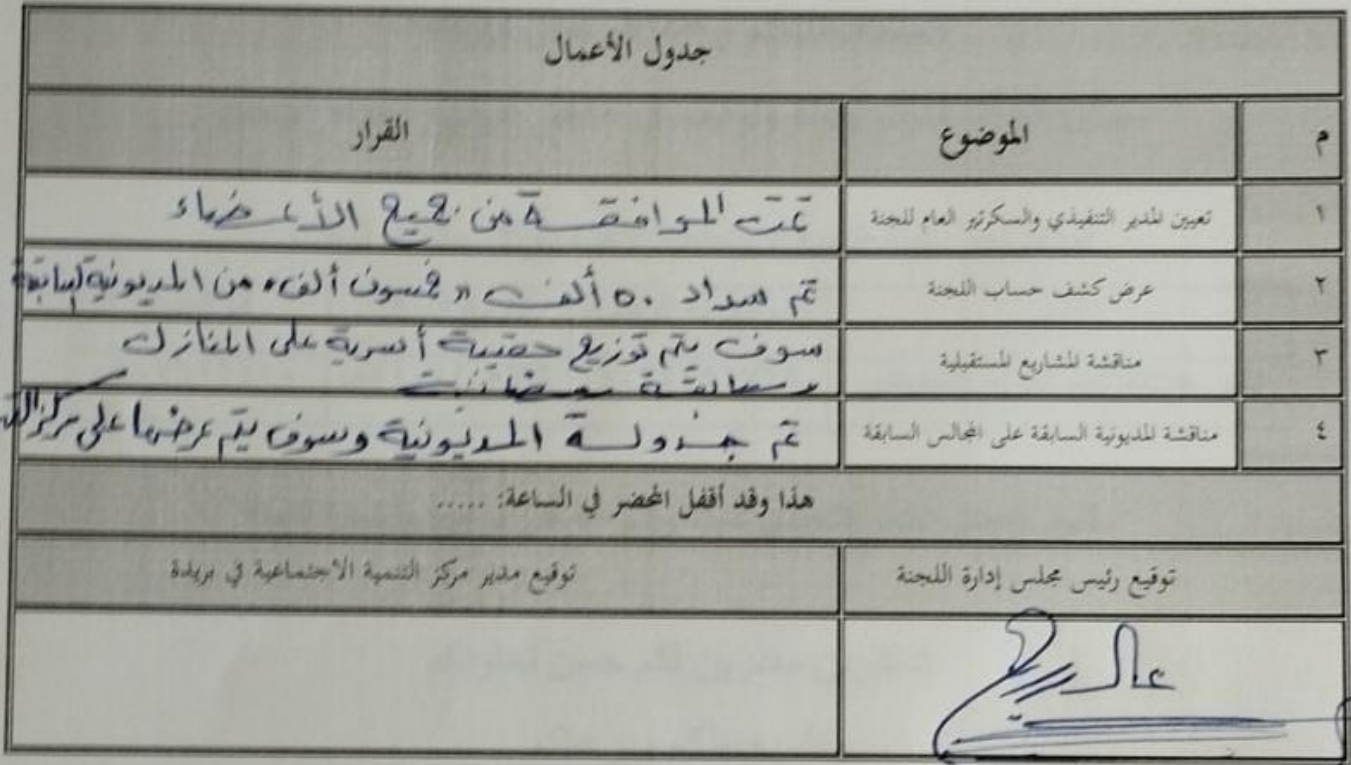 جدول الأعمال
م الموضوع القرار
١ تعيين المدير التنفيذي والسكرتير العام للجنة تمت الموافقة من جميع الأعضاء
٢ عرض كشف حساب اللجنة تم سداد ٥٠ ألف " خمسون ألف " من المديونية السابقة
٣ مناقشة المشاريع المستقبلية سوف يتم توزيع حقيبة أسرية على المنازل
٤ مناقشة المديونية السابقة على المجالس السابقة تم جدولة المديونية وسوف يتم عرضها على مركز
هذا وقد أقفل المحضر في الساعة: .....
توقيع رئيس مجلس إدارة اللجنة توقيع مدير مركز التنمية الاجتماعية في بريدة